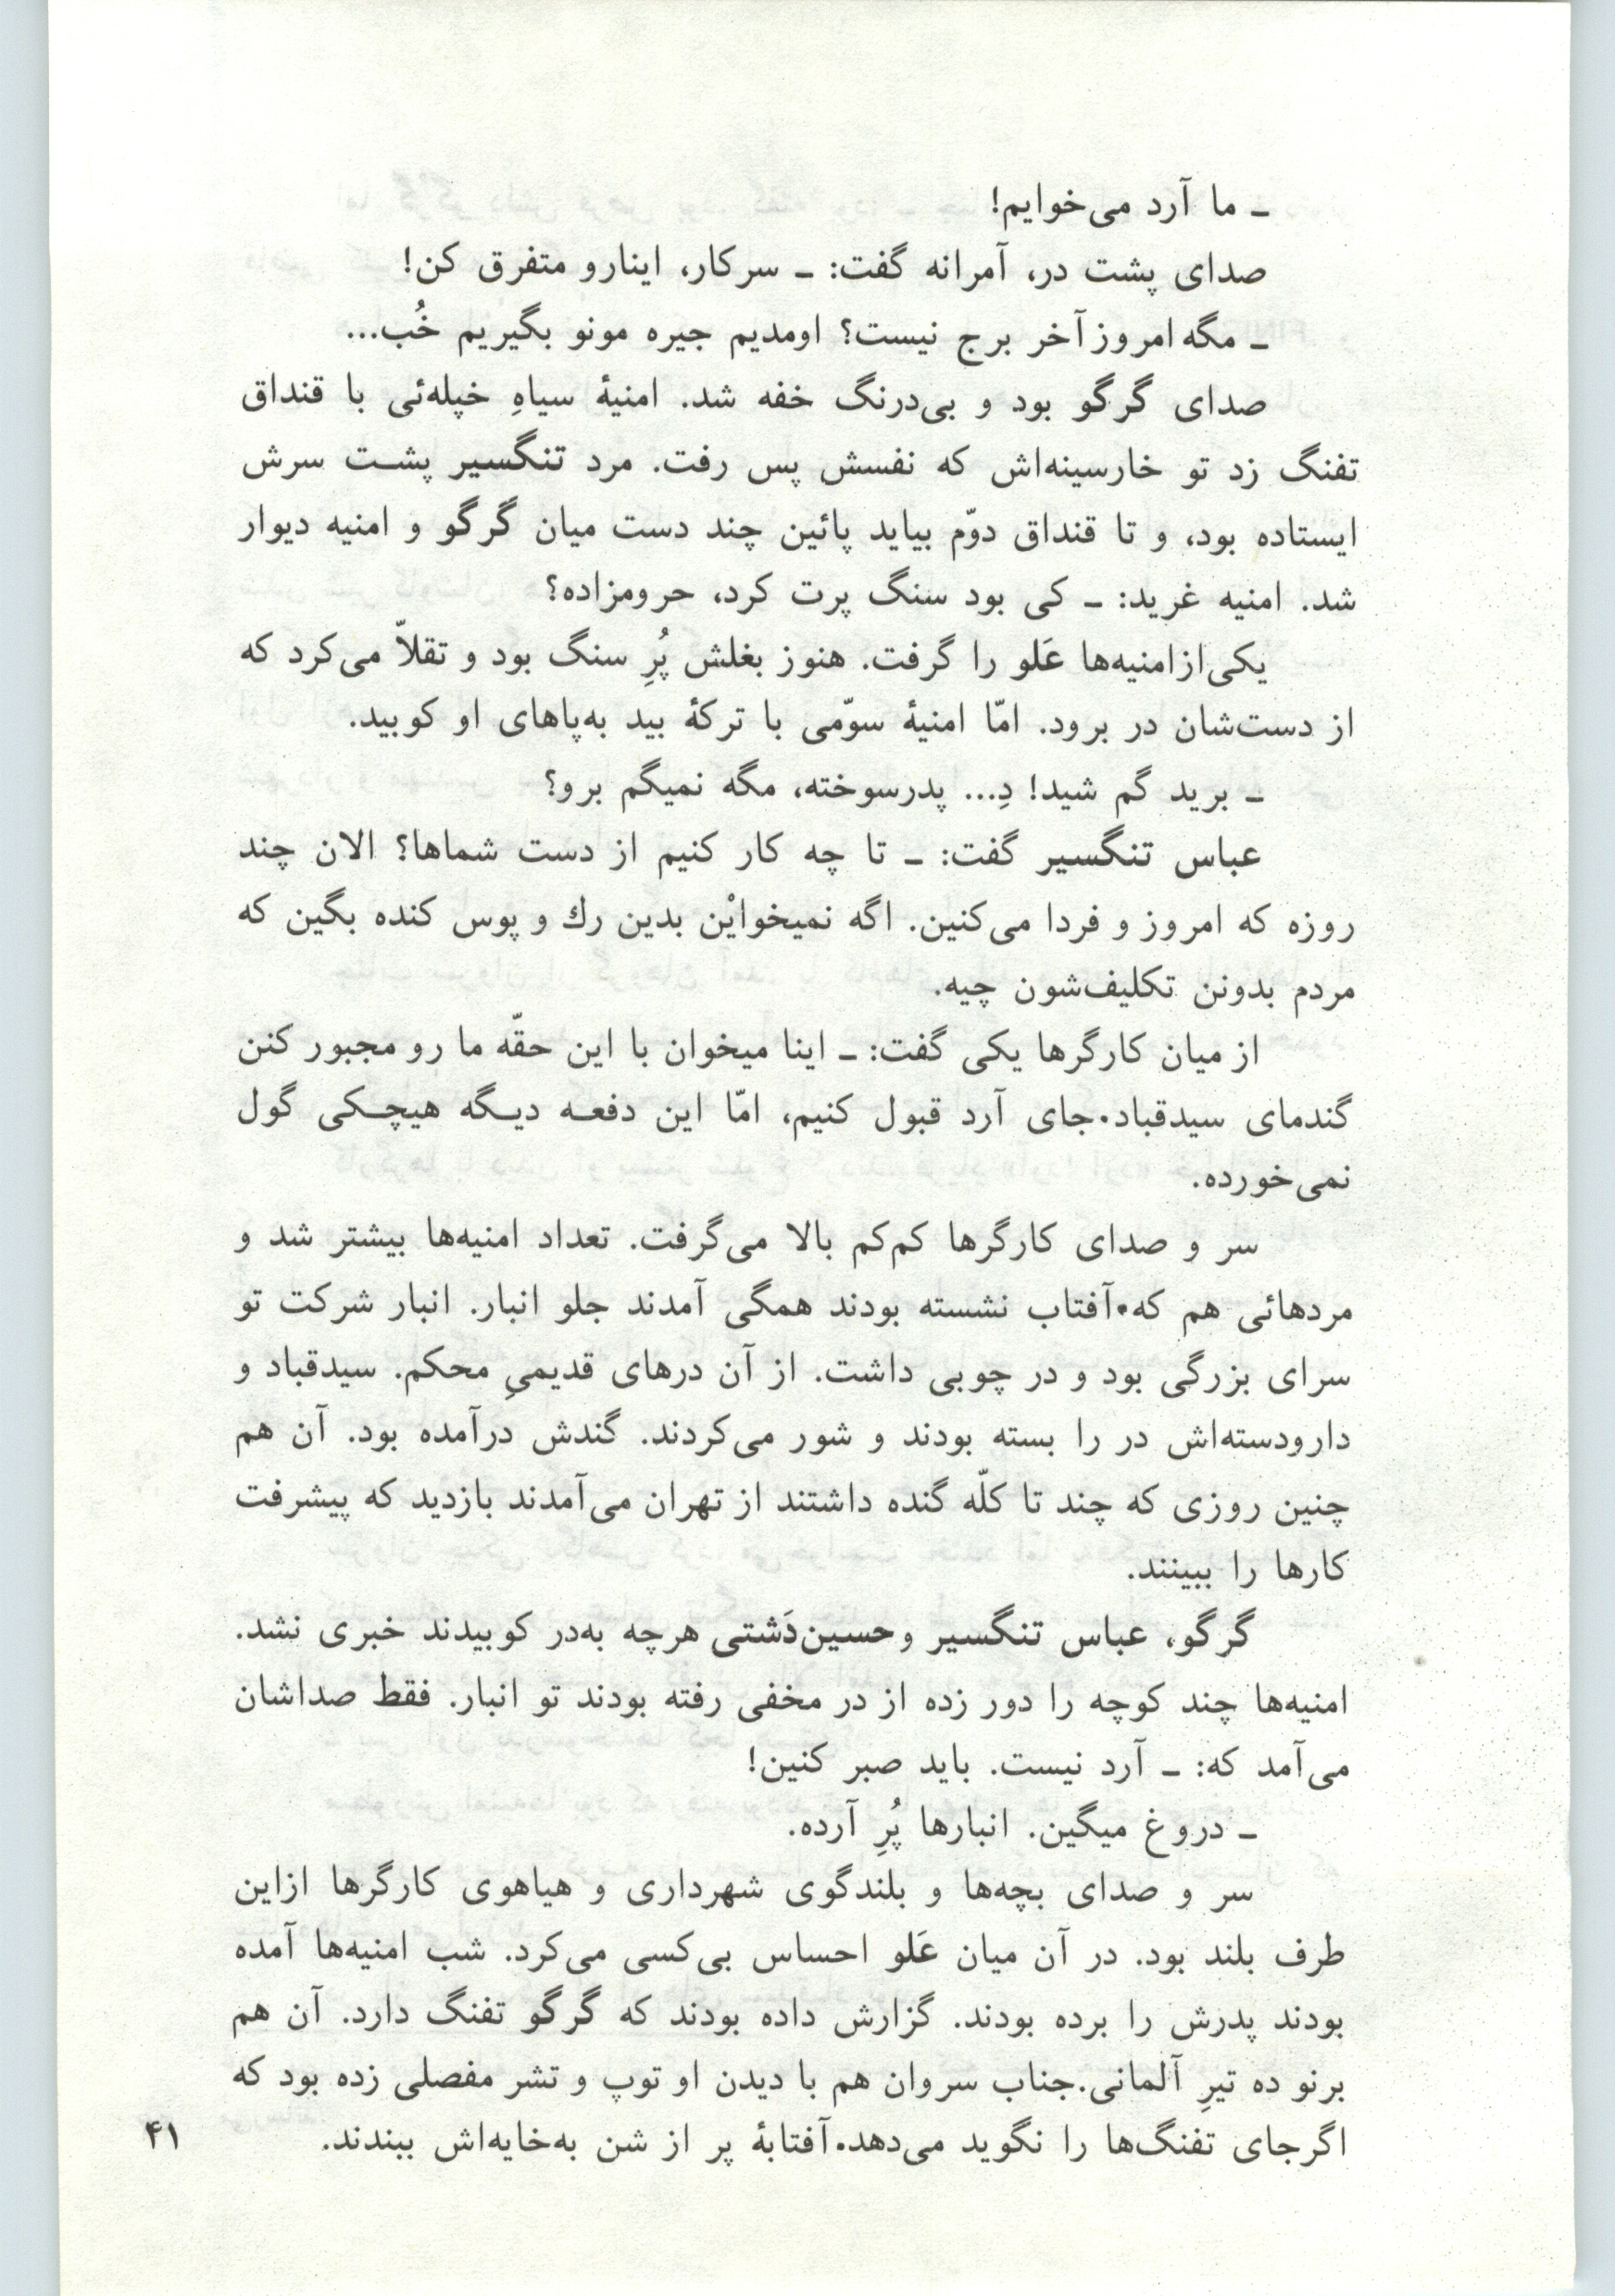 ـ ما آرد می‌خوایم!
صدای پشت در، آمرانه گفت: ـ سرکار، اینارو متفرق کن!
ـ مگه امروز آخر برج نیست؟ اومدیم جیره مونو بگیریم خُب...
صدای گرگو بود و بی‌درنگ خفه شد. امنیهٔ سیاهِ خپله‌ئی با قنداق
تفنگ زد تو خارسینه‌اش که نفسش پس رفت. مرد تنگسیر پشت سرش
ایستاده بود، و تا قنداق دوّم بیاید پائین چند دست میان گرگو و امنیه دیوار
شد. امنیه غرید: ـ کی بود سنگ پرت کرد، حرومزاده؟
یکی از امنیه‌ها عَلو را گرفت. هنوز بغلش پُرِ سنگ بود و تقلاّ می‌کرد که
از دست‌شان در برود. امّا امنیهٔ سوّمی با ترکهٔ بید به‌پاهای او کوبید.
ـ برید گم شید! دِ... پدرسوخته، مگه نمیگم برو؟
عباس تنگسیر گفت: ـ تا چه کار کنیم از دست شماها؟ الان چند
روزه که امروز و فردا می‌کنین. اگه نمیخوایْن بدین رك و پوس کنده بگین که
مردم بدونن تکلیف‌شون چیه.
از میان کارگرها یکی گفت: ـ اینا میخوان با این حقّه ما رو مجبور کنن
گندمای سیدقباد.جای آرد قبول کنیم، امّا این دفعه دیگه هیچکی گول
نمی‌خورده.
سر و صدای کارگرها کم‌کم بالا می‌گرفت. تعداد امنیه‌ها بیشتر شد و
مردهائی هم که.آفتاب نشسته بودند همگی آمدند جلو انبار. انبار شرکت تو
سرای بزرگی بود و در چوبی داشت. از آن درهای قدیمیِ محکم. سیدقباد و
دارودسته‌اش در را بسته بودند و شور می‌کردند. گندش درآمده بود. آن هم
چنین روزی که چند تا کلّه گنده داشتند از تهران می‌آمدند بازدید که پیشرفت
کارها را ببینند.
گرگو، عباس تنگسیر و حسین‌دَشتی هرچه به‌در کوبیدند خبری نشد.
امنیه‌ها چند کوچه را دور زده از در مخفی رفته بودند تو انبار. فقط صداشان
می‌آمد که: ـ آرد نیست. باید صبر کنین!
ـ دروغ میگین. انبارها پُرِ آرده.
سر و صدای بچه‌ها و بلندگوی شهرداری و هیاهوی کارگرها ازاین
طرف بلند بود. در آن میان عَلو احساس بی‌کسی می‌کرد. شب امنیه‌ها آمده
بودند پدرش را برده بودند. گزارش داده بودند که گرگو تفنگ دارد. آن هم
برنو ده تیرِ آلمانی.جناب سروان هم با دیدن او توپ و تشر مفصلی زده بود که
اگرجای تفنگ‌ها را نگوید می‌دهد.آفتابهٔ پر از شن به‌خایه‌اش ببندند.
۴۱